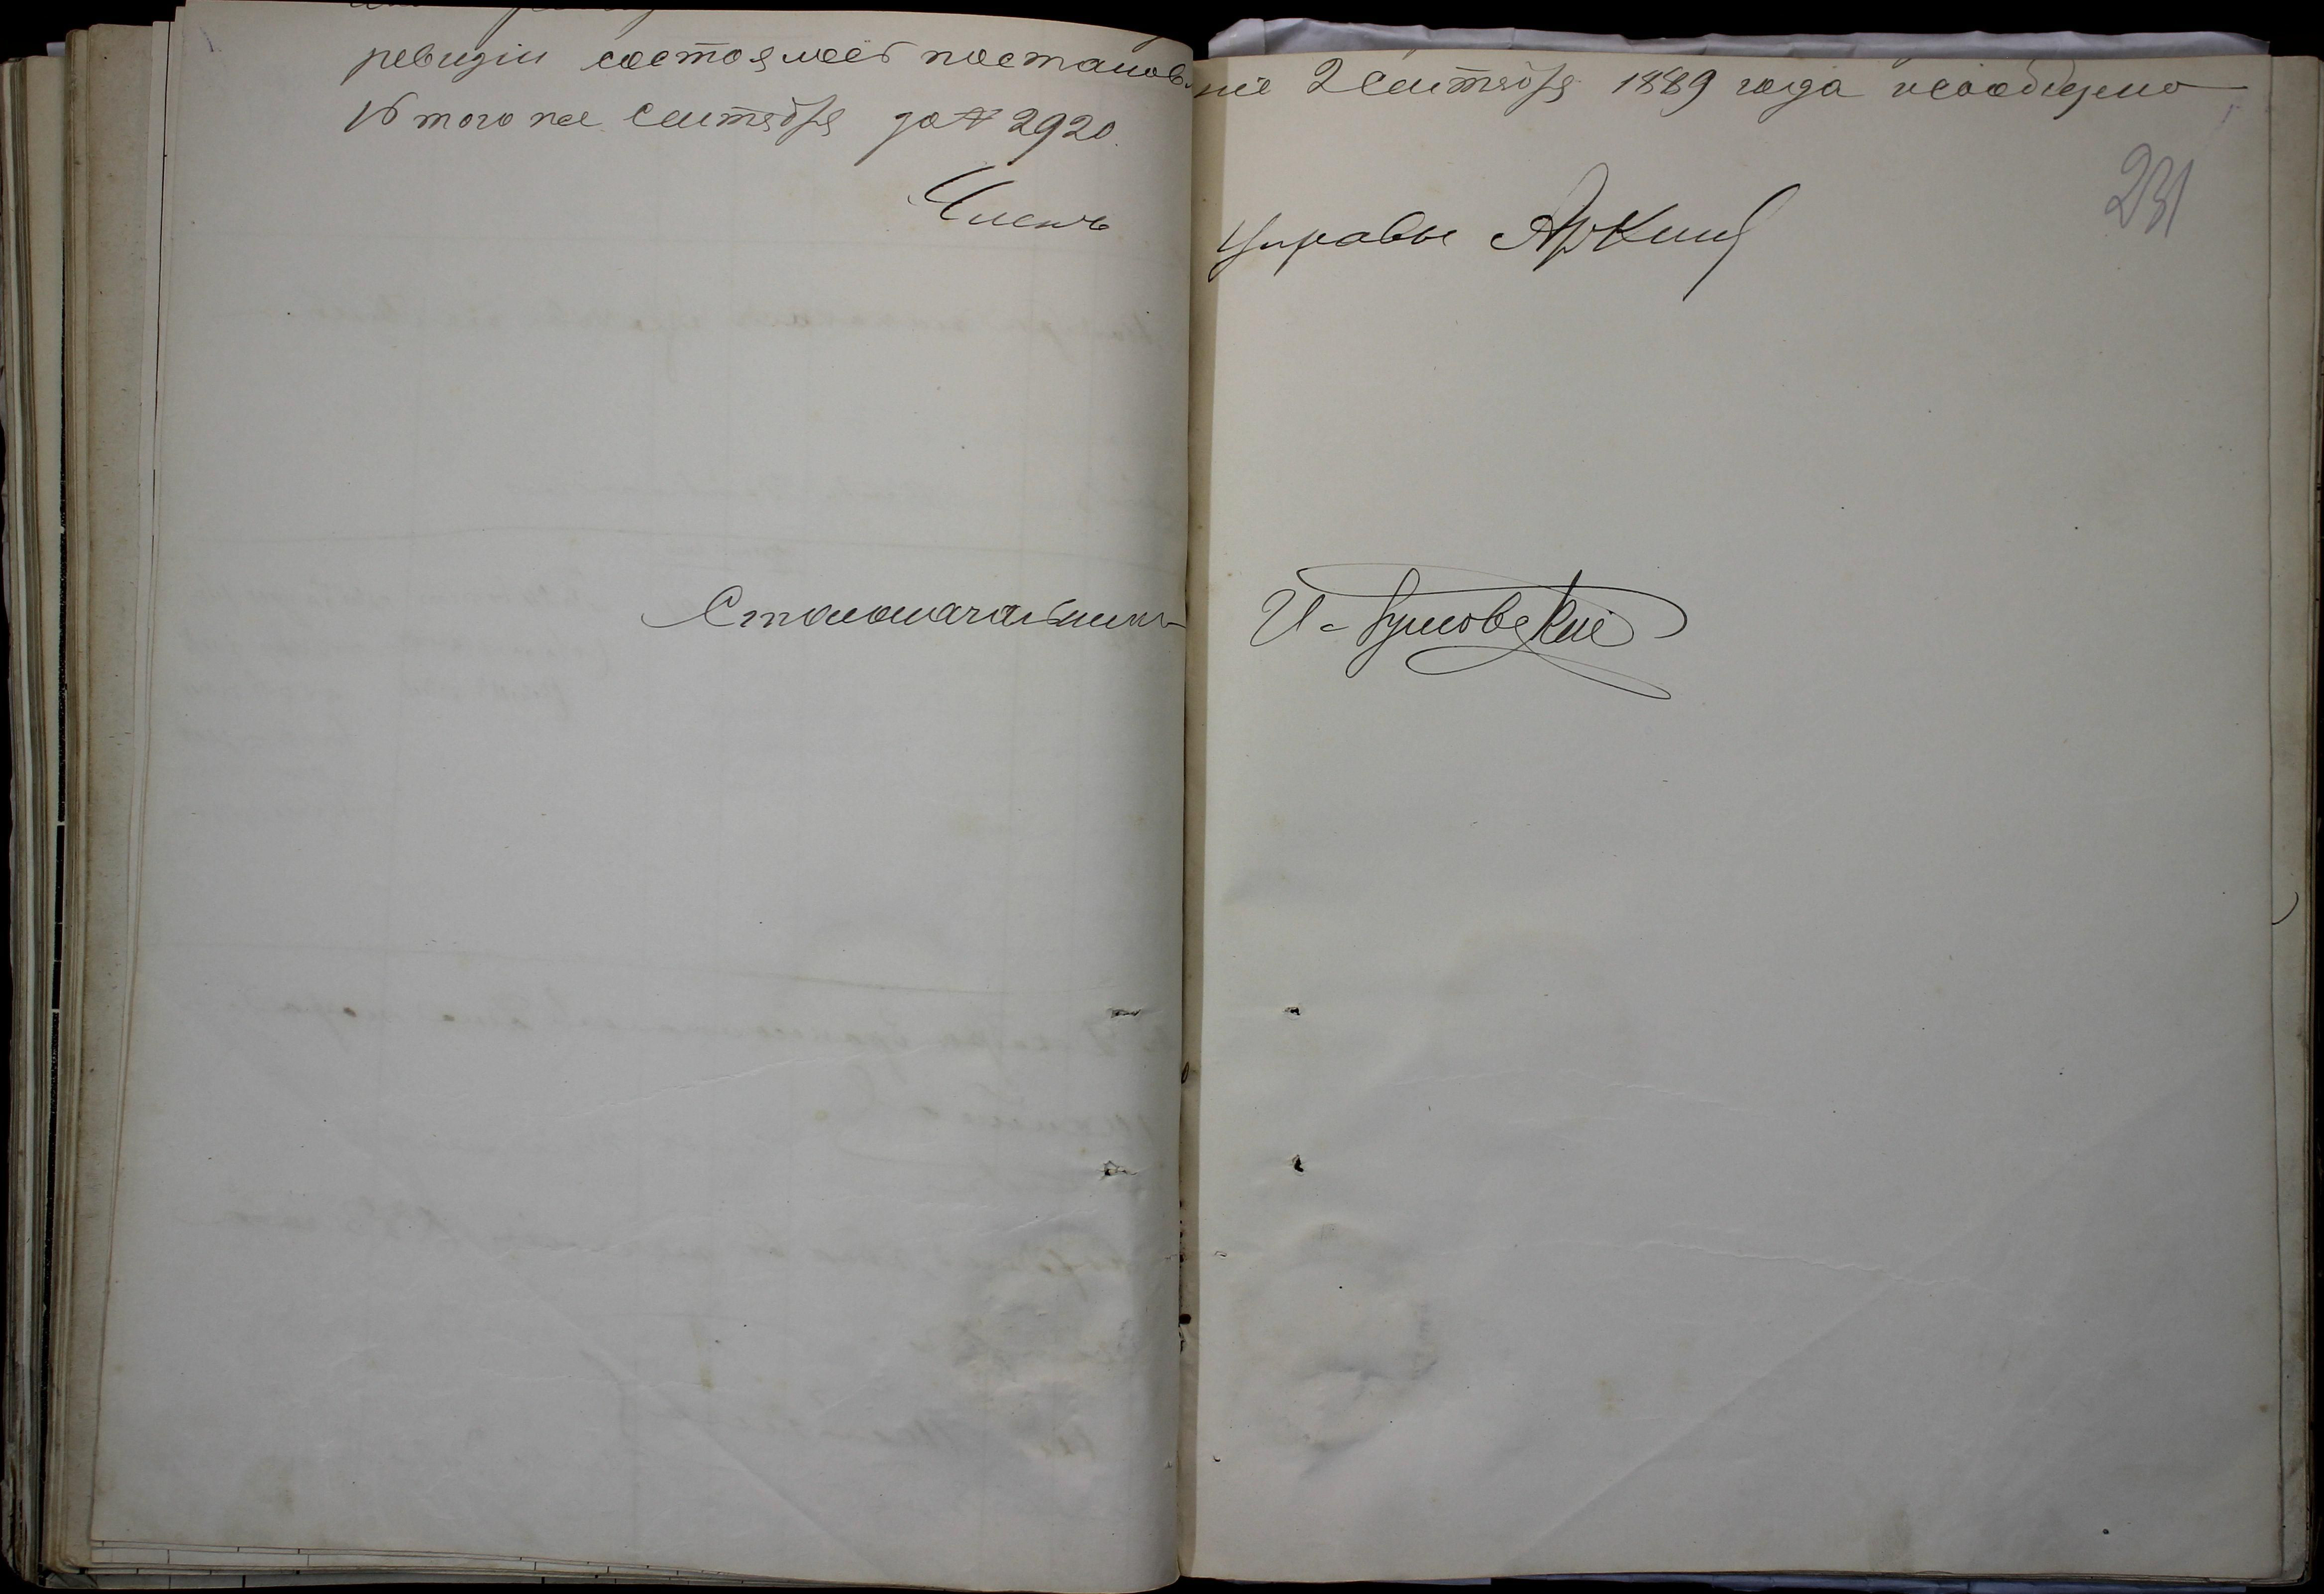 ревизіи состоялось постановле
ніе 2 Сентября 1889 года и сообщено
16 того же Сентября за № 2920.
Членъ
Управы Аркинъ
Столоначальникъ
231